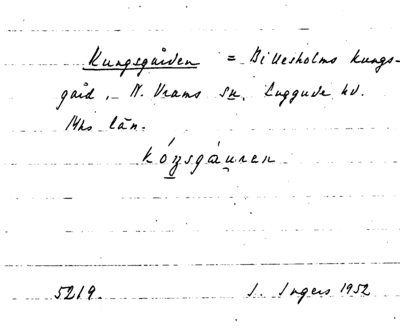 Kungsgården = Billesholms kungs-
gård, N. Vrams sn, Luggude hd.
Mhs län.
kóŋsgáuren
5219. I. Ingers 1952